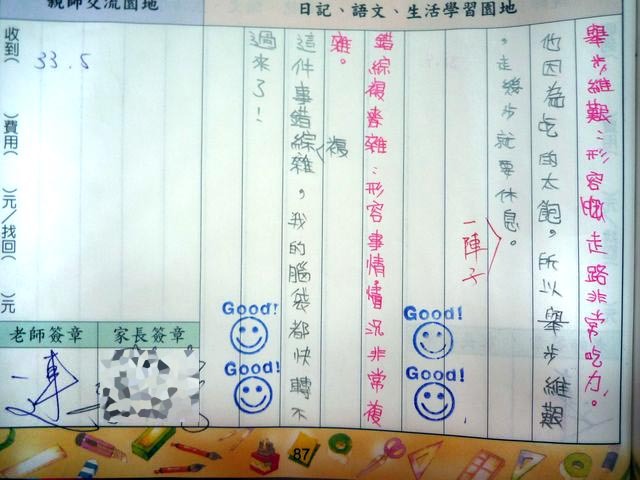 親師交流園地
日記、語文、生活學習園地
舉步維艱：形容走路非常吃力。
他因為吃的太飽，所以舉步維艱
，走幾步就要休息。
一陣子
錯綜複雜：形容事情情況非常複
雜。
這件事錯綜雜，我的腦袋都快轉不
複
過來了！
Good!
Good!
Good!
Good!
收到(
)費用(
)元/找回(
)元
33.5
老師簽章
家長簽章
87